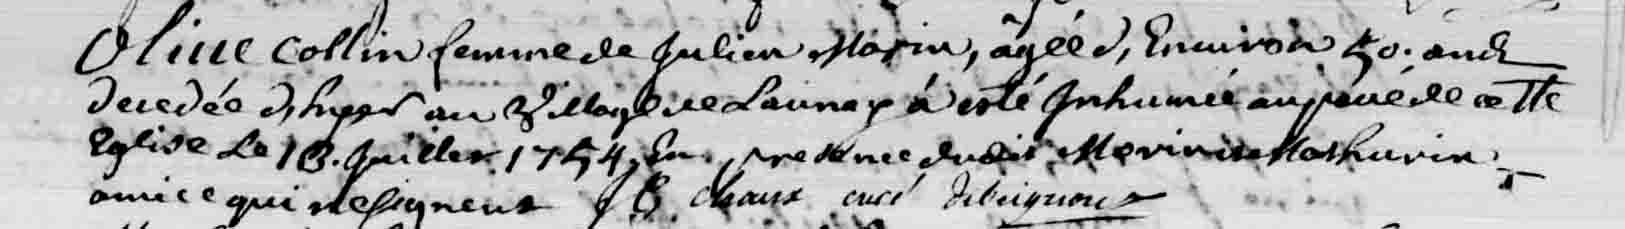 Olive Collin femme de Julien Morin, âgéé d'Environ 50. ans
decedée d'hyer au Village de Launay á esté Inhumée au pavé de cette
Eglise Le 13. Juillet 1754, En presence dudit Morin et Mathurin
amice qui ne signent J B chaux curé